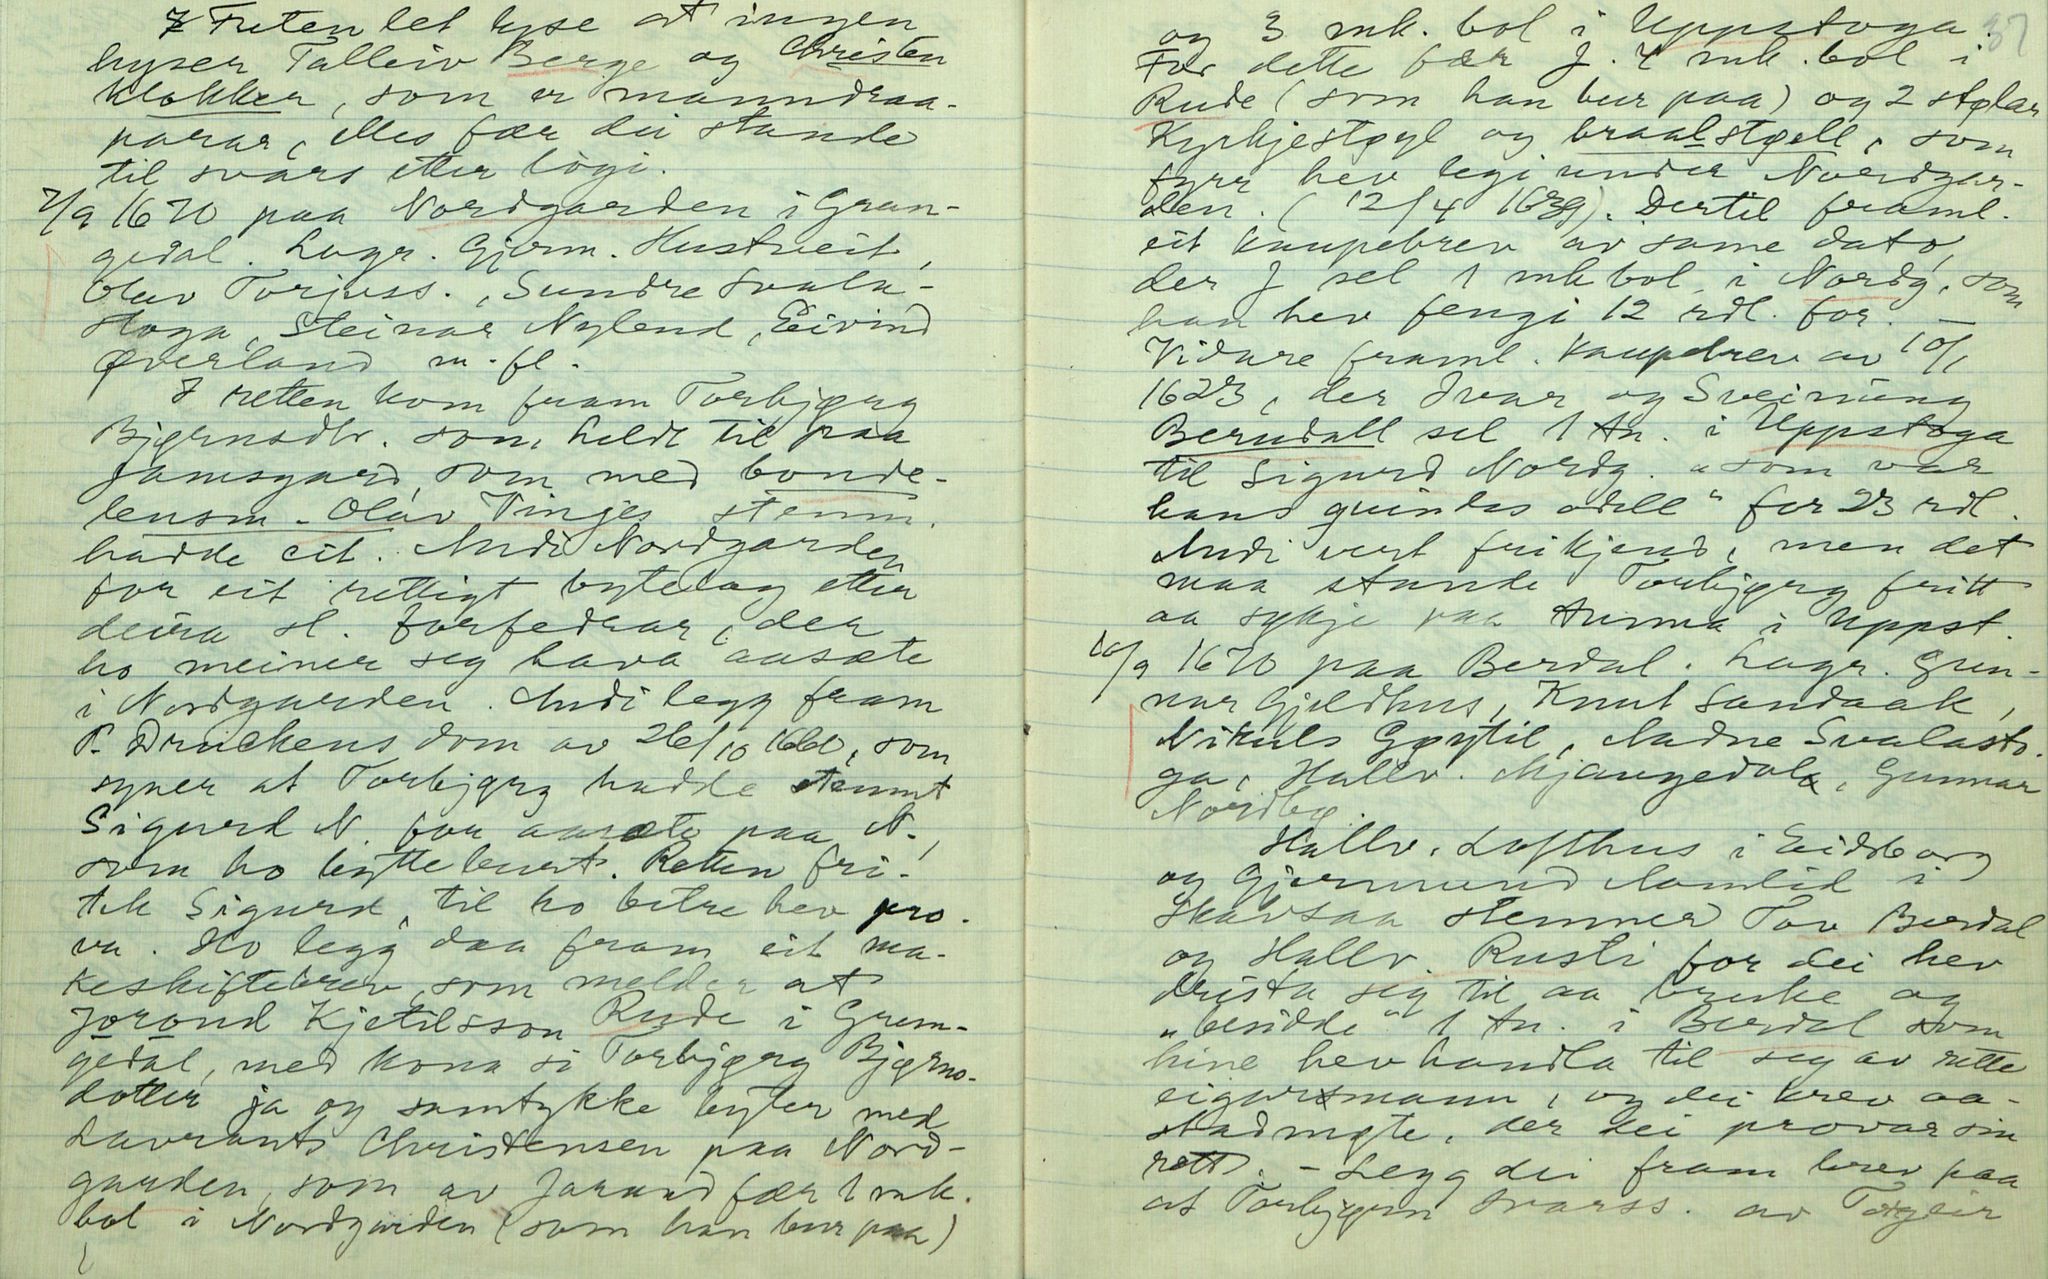 Futen let lyse at ingen
hyser Talleiv Berge og Christen
Klokker, som er manndraa-
parar, elles fær dei stande
til svars etter logi.
7/9 1670 paa Nordgarden i Gran-
gedal. Lagr. Gjerm. Hustveit,
Olav Torjuss., Sundre Svala-
stoga, Steinar Nylend, Eivind
Øverland m. fl.
I retten kom fram Torbjørg
Bjørnsdtr. som heldt til paa
Jamsgard, som med bonde-
lensm. Olav Tinjes stemn.
hadde cit. Andi Nordgarden
for eit rettigt bytelag etter
deira sl. forfedrar, der
ho meiner seg hava aasæte
i Nordgarden. Andi legg fram
P. Druckens dom av 26/10 1660, som
syner at Torbjørg hadde stemnt
Sigurd N. for aasæte paa N.,
som ho bytte burt. Retten fri-
tek Sigurd, til ho betre hev pro-
va. Ho legg daa fram eit ma-
keskiftebrev, som melder at
Jorond Kjetilsson Rude i Gren-
gedal, med kona si Torbjørg Bjørns-
dotter ja og samtykke byter med
Lavrants Christensen paa Nord-
garden, som av Jorund fær 1 mk.
bol i Nordgarden (som han bur paa)
og 3 mk. bol i Uppstoga.
37
For dette fær J. 4 mk. bol i
Rude (som han bur paa) og 2 stølar
Kyrkjestøyl og braalstøll, som
fyrr hev legi under Nordgar-
den. (12/4 1639). Dertil framl.
eit kaupebrev av same dato,
der J sel 1 mk bol i Nordg. som
han hev fengi 12 rdl. for. —
Vidare framl. kaupebrev av 10/1
1623, der Ivar og Sveinung
Berudall sel 1 tn. i Uppstoga
til Sigurd Nordg. "som var
hans quindes odell" for 23 rdl.
Andi vert frikjend, men det
maa stande Torbjørg fritt
aa sykje paa tunna i Uppst.
10/9 1670 paa Berdal. Lagr. Gun-
nar Gjeldhus, Knut Sandaak,
Nikuls Gøytil, Aadne Svalasto-
ga, Hallv. Mjaugedal, Gunnar
Nordbø.
Hallv. Lofthus i Eidsborg
og Gjermund Aamlid i
Skavsaa stemner Tov Berdal
og Hallv. Rusli for dei hev
drista seg til aa bruke og
"besidde" 1 tn. i Berdal som
hine hev handla til seg av rette
eigarsmann, og dei krev aa-
stadmøte, der dei provar sin
rett. — Legg dei fram brev paa
at Torbjørn Ivarss. av Torgeir